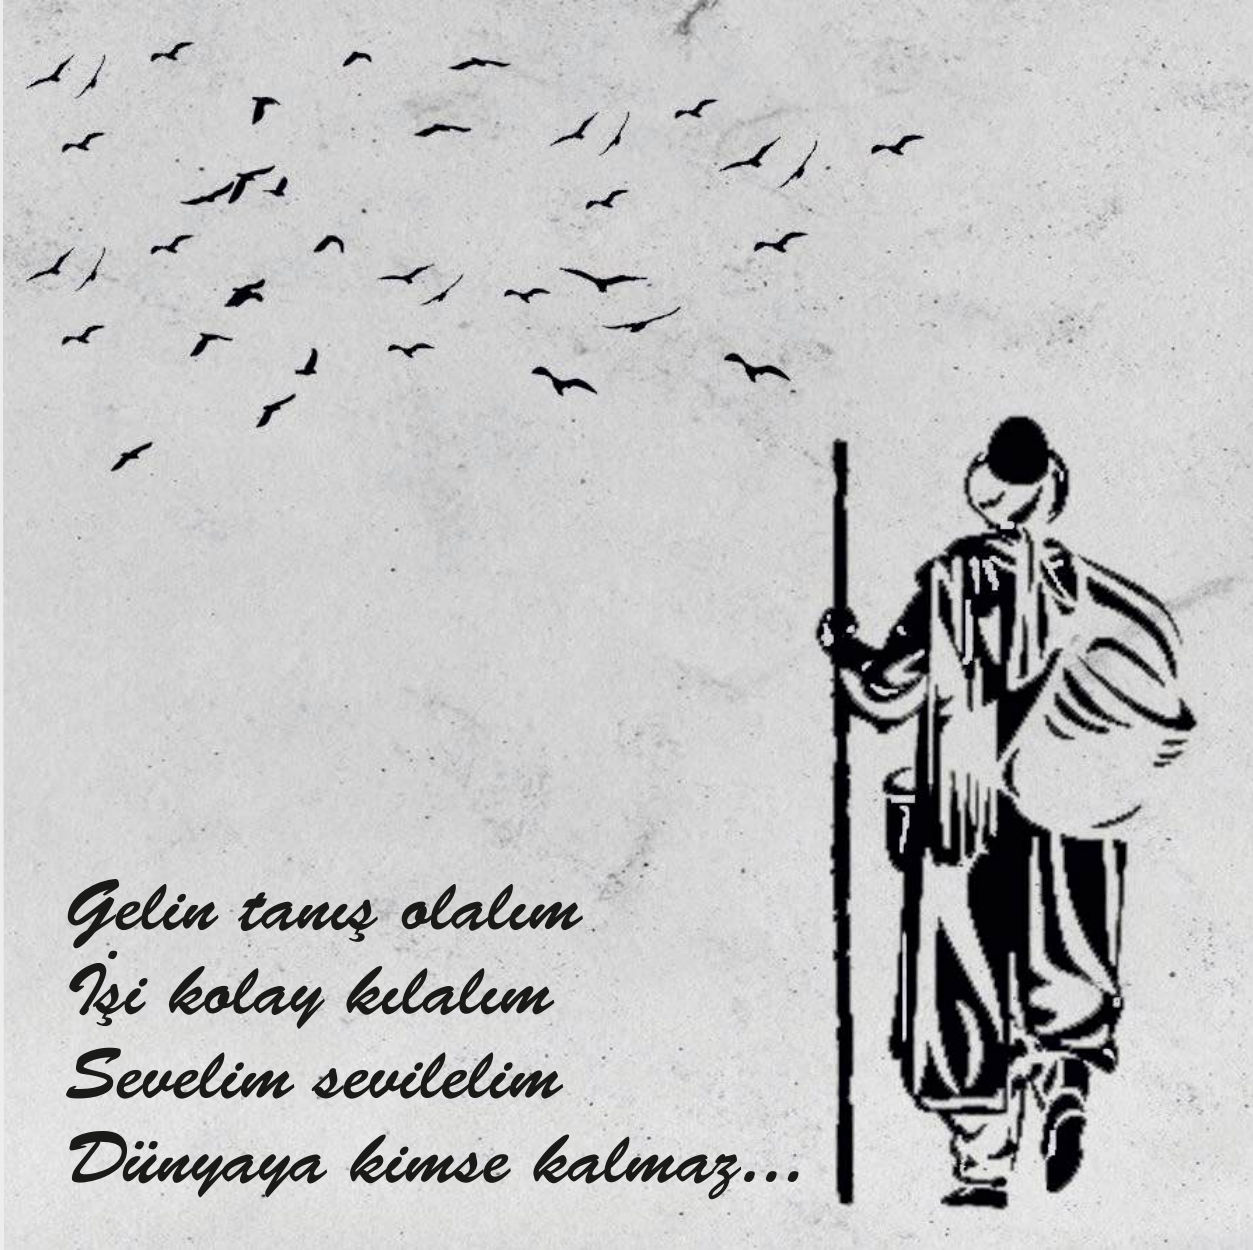 Gelin tanış olalım
İşi kolay kılalım
Sevelim sevilelim
Dünyaya kimse kalmaz...